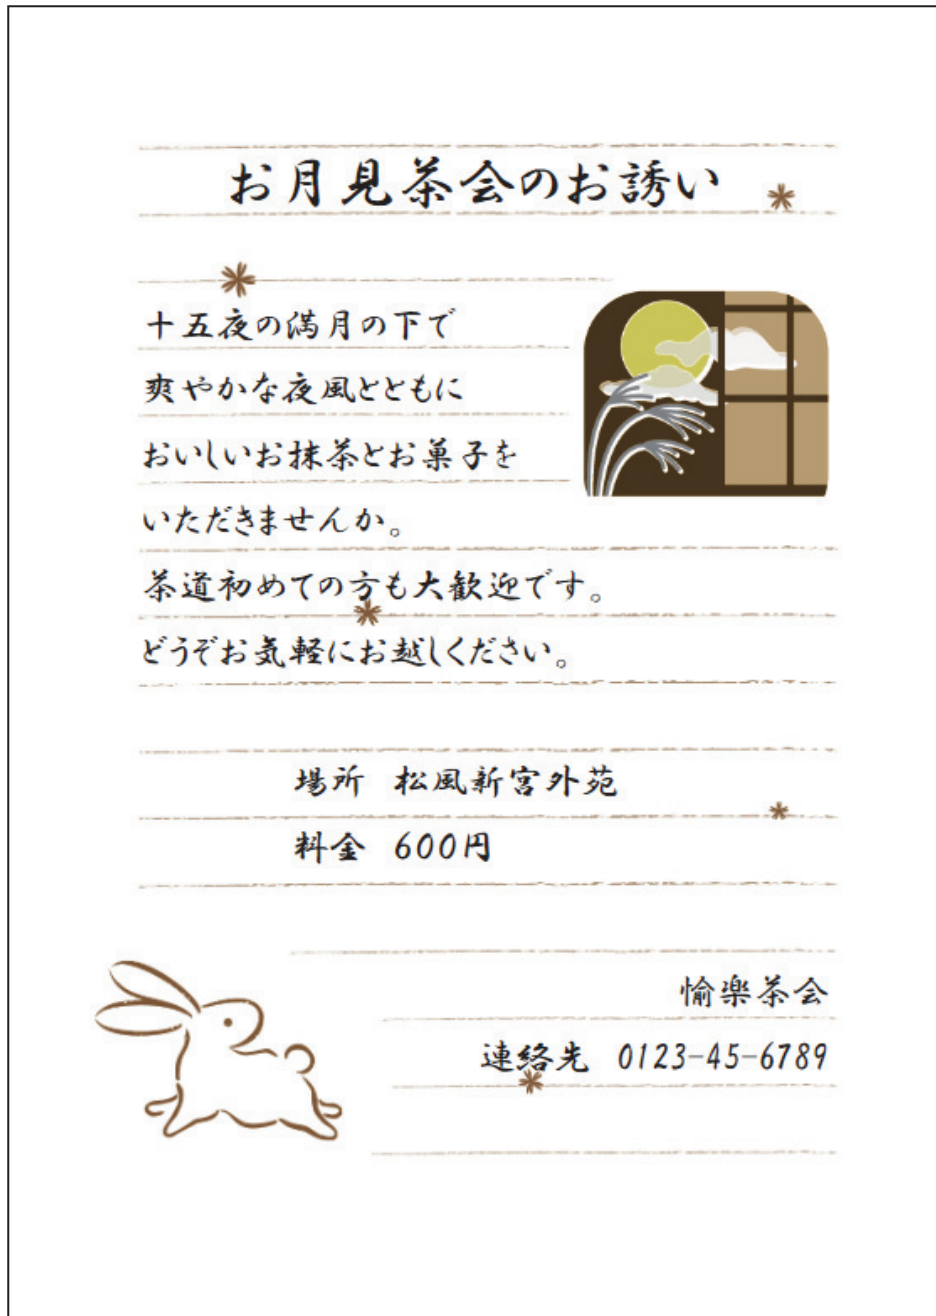 お月見茶会のお誘い
十五夜の満月の下で
爽やかな夜風とともに
おいしいお抹茶とお菓子を
いただきませんか。
茶道初めての方も大歓迎です。
どうぞお気軽にお越しください。
場所 松風新宮外苑
料金 600円
愉楽茶会
連絡先 0123-45-6789